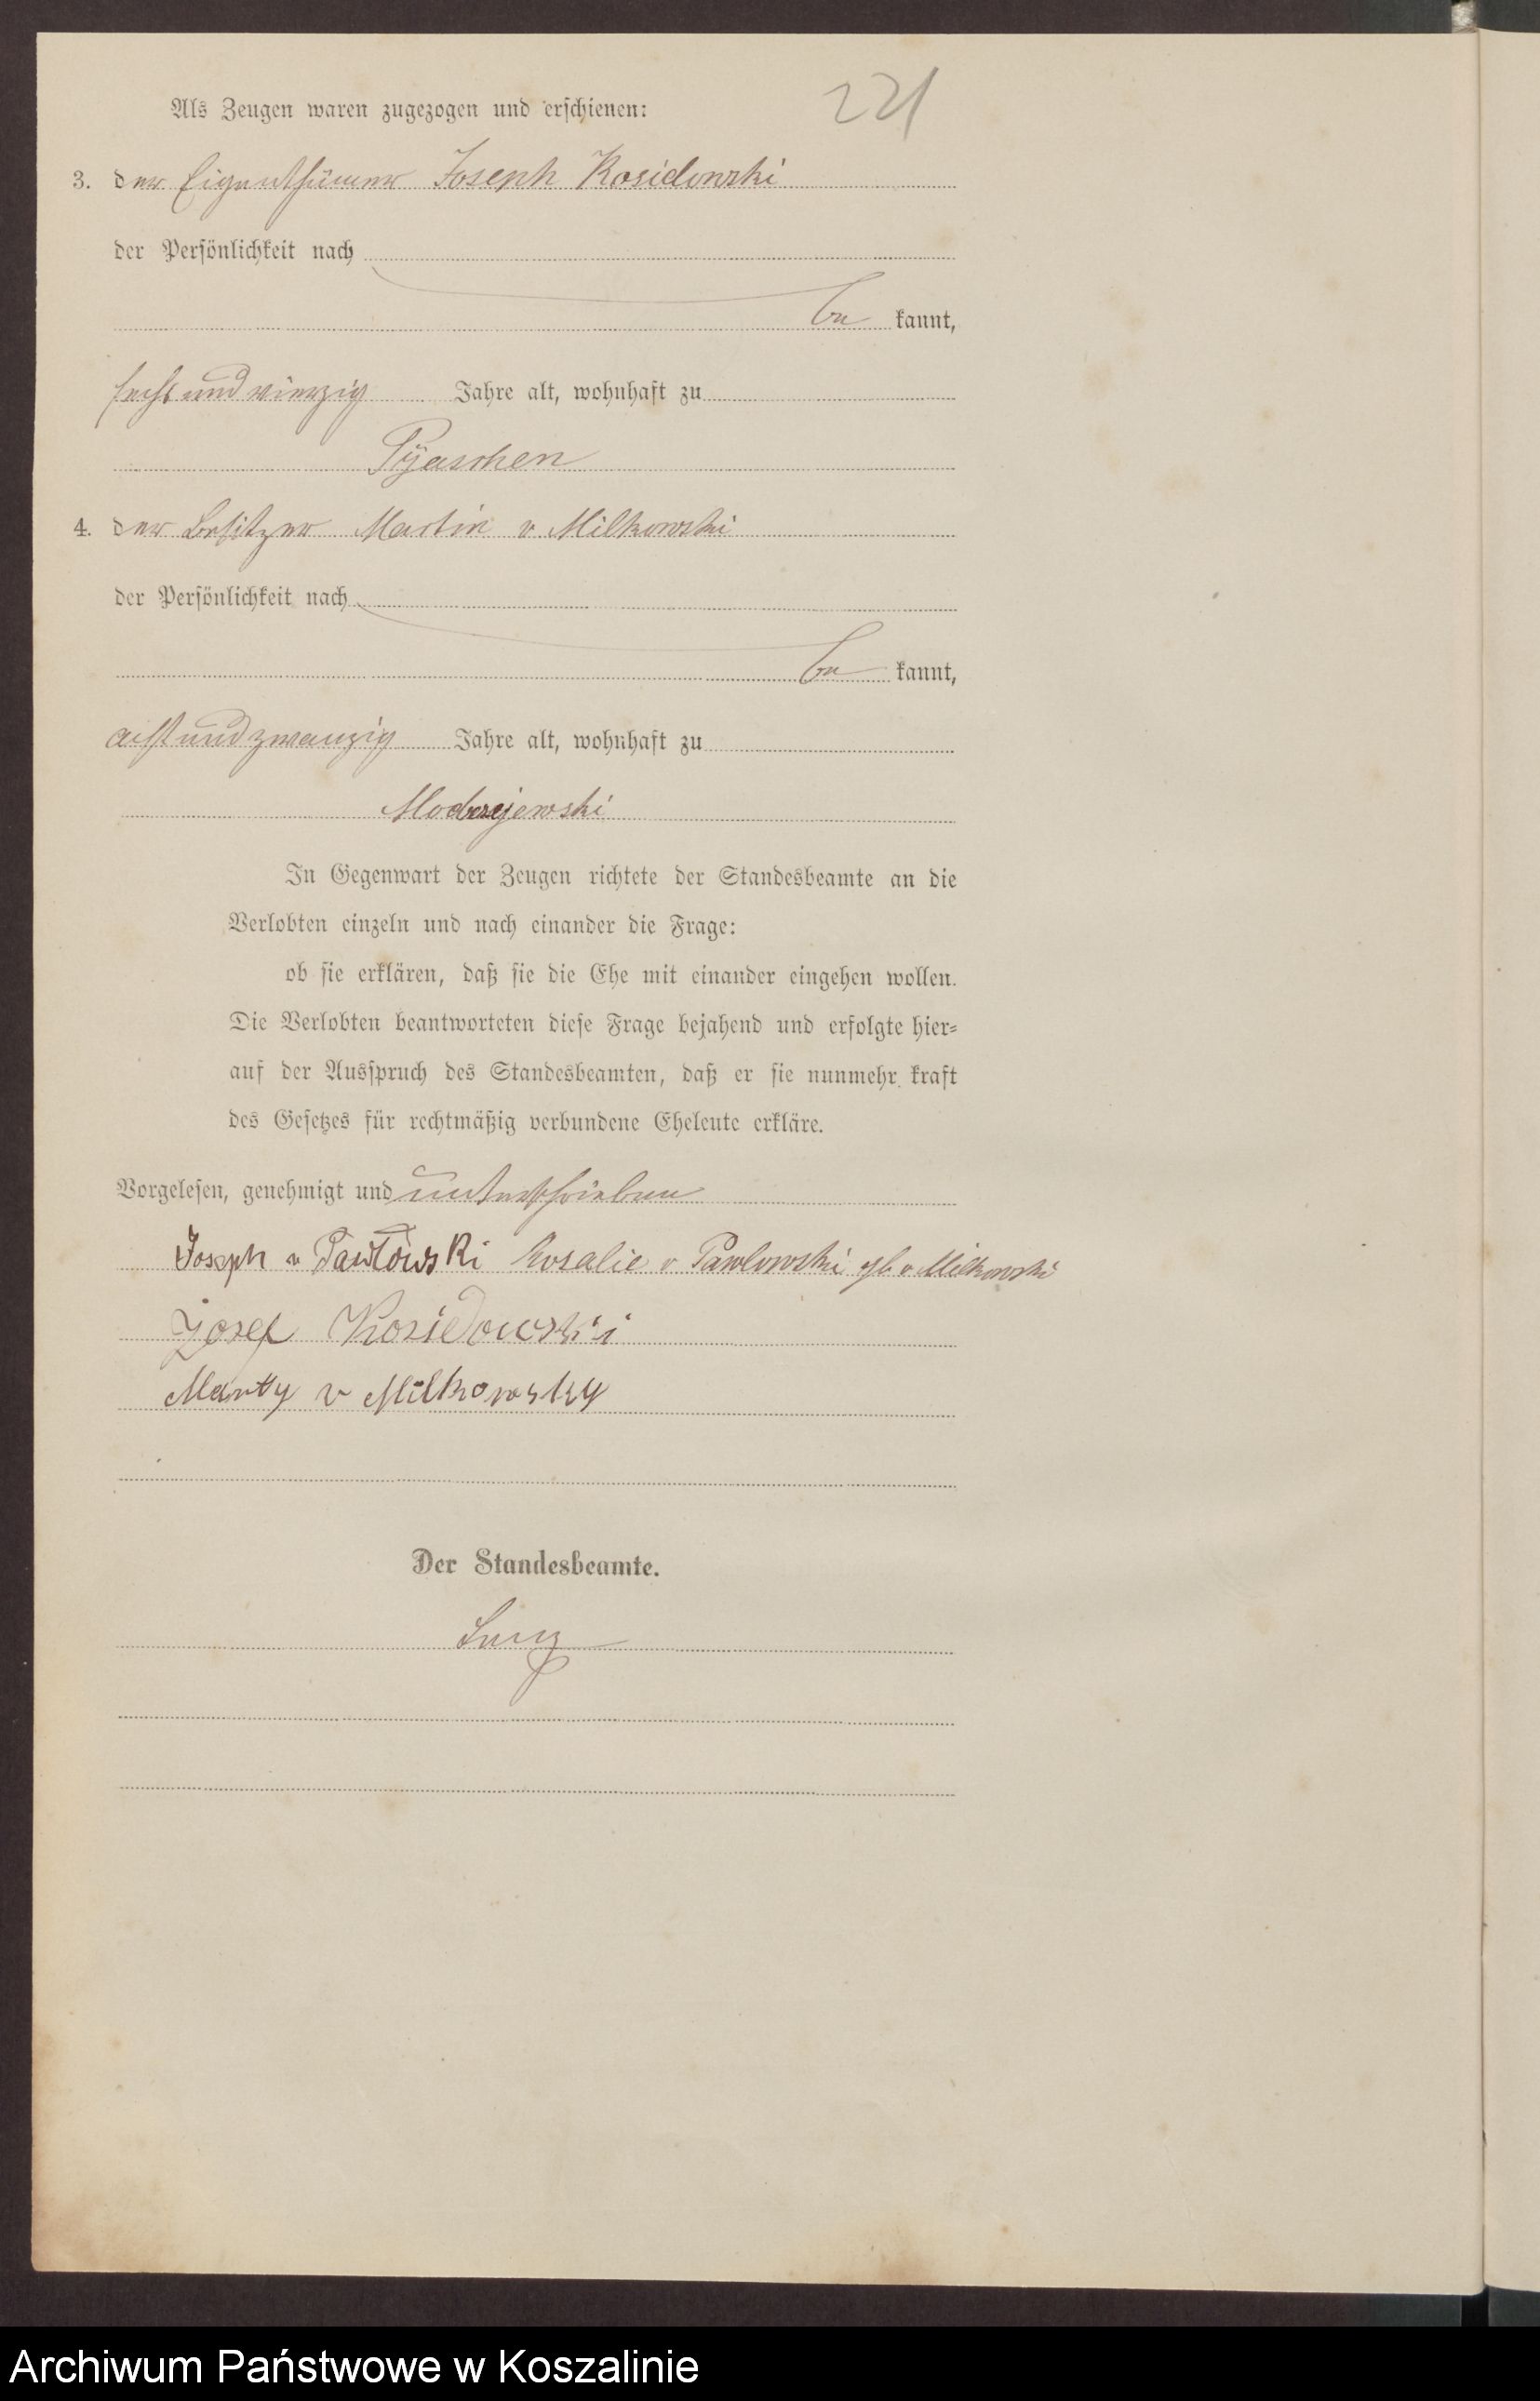 221
Als Zeugen waren zugezogen und erschienen:
3. der Eigenthümer Joseph Kosidowski
der Persönlichkeit nach
be kannt,
sechsundvierzig Jahre alt, wohnhaft zu
Pyaschen
4. der Besitzer Martin v Milkowski
der Persönlichkeit nach
be kannt,
achtundzwanzig Jahre alt, wohnhaft zu
Moderzejewski
In Gegenwart der Zeugen richtete der Standesbeamte an die
Verlobten einzeln und nach einander die Frage:
ob sie erklären, daß sie die Ehe mit einander eingehen wollen.
Die Verlobten beantworteten diese Frage bejahend und erfolgte hier-
auf der Ausspruch des Standesbeamten, daß er sie nunmehr kraft
des Gesetzes für rechtmäßig verbundene Eheleute erkläre.
Vorgelesen, genehmigt und unterschrieben
Joseph v Pawłowski Rosalie v Pawlowski gb. v Milkowski
Josef Kosidowski
Marty v Milkowsky
Der Standesbeamte.
Archiwum Państwowe w Koszalinie